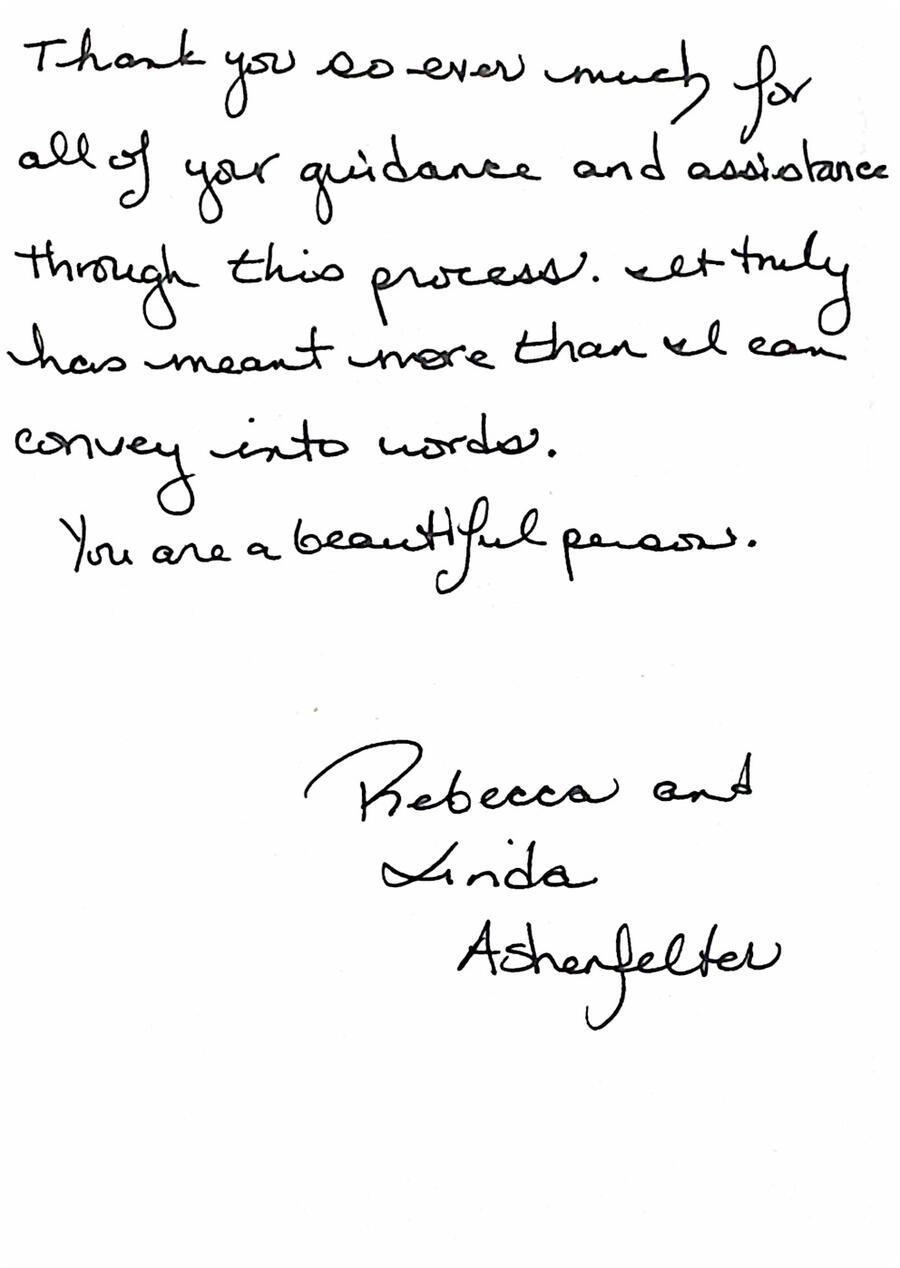 Thank you so ever much for
all of your guidance and assistance
through this process. It truly
has meant more than I can
convey into words.
You are a beautiful person.
Rebecca and
Linda
Ashenfelter